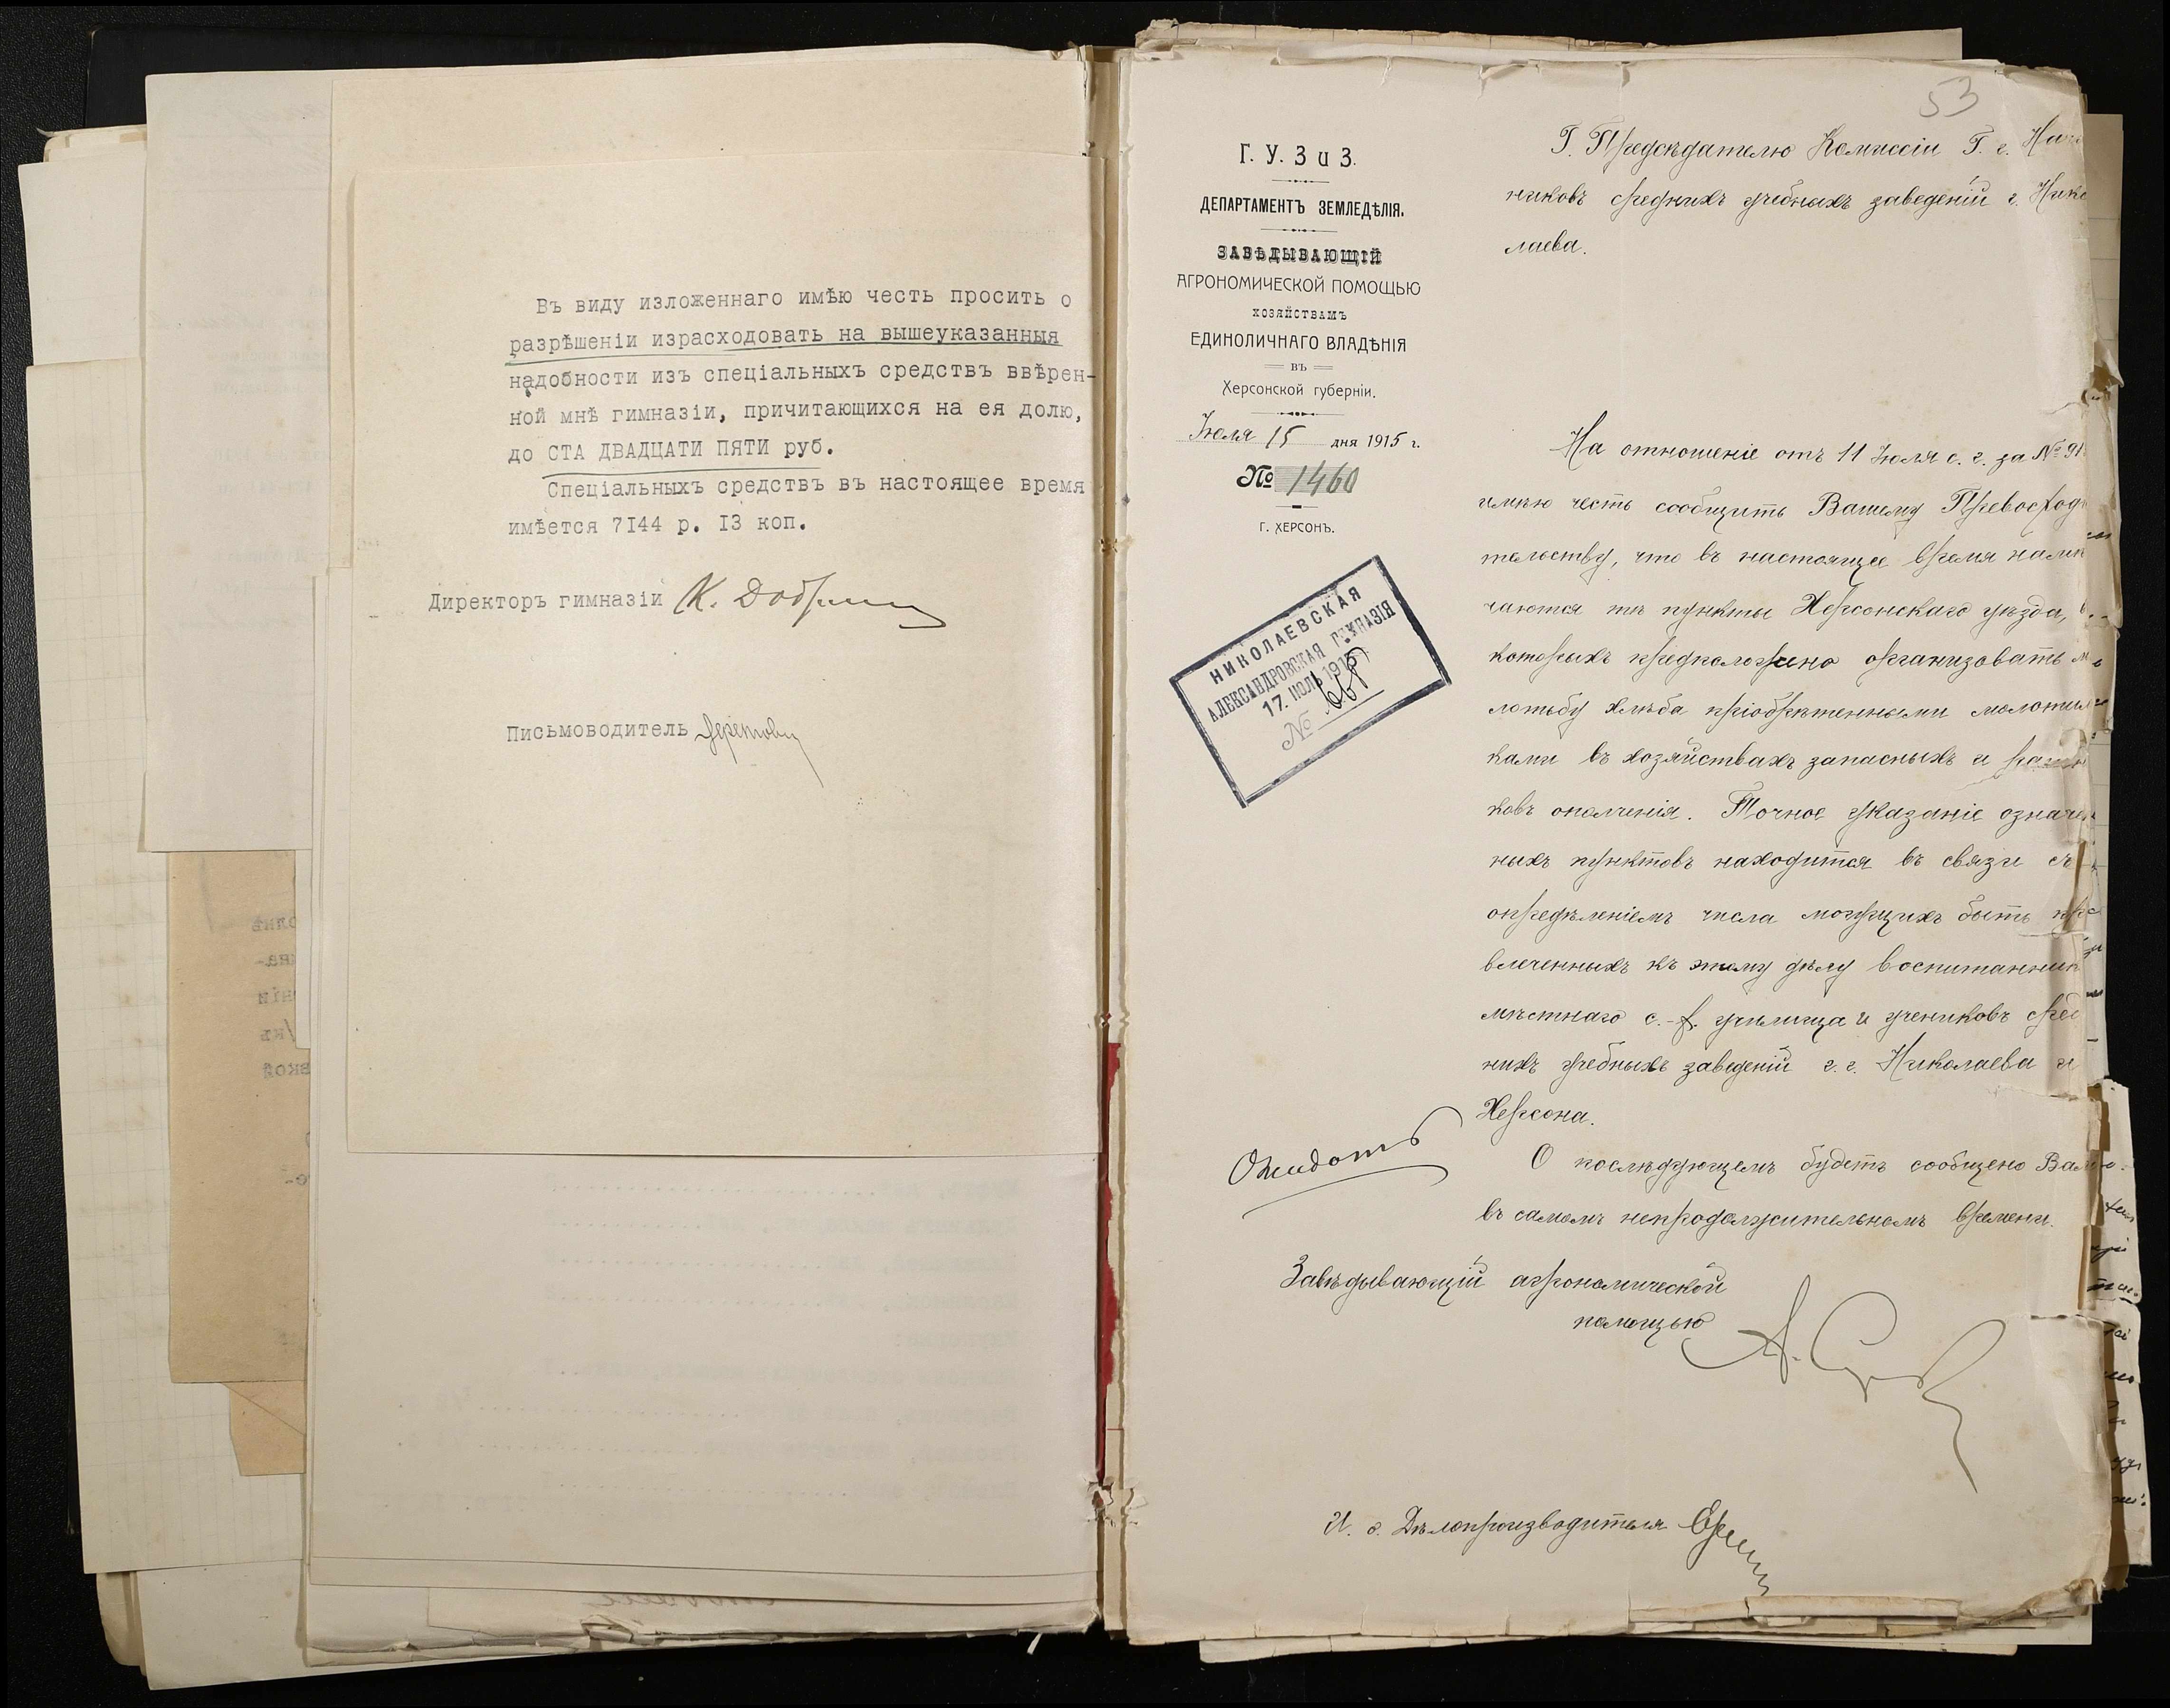 Въ виду изложеннаго имѣю честь просить о
разрѣшеніи израсходовать на вышеуказанныя
надобности изъ спеціальныхъ средствъ ввѣрен-
ной мнѣ гимназіи, причитающихся на ея долю,
до СТА ДВАДЦАТИ ПЯТИ руб.
Спеціальныхъ средствъ въ настоящее время
имѣется 7I44 р. I3 коп.
Директоръ гимназіи К.
Письмоводитель
53
Г. У. З и З.
ДЕПАРТАМЕНТЪ ЗЕМЛЕДѢЛІЯ.
ЗАВѢДЫВАЮЩІЙ
АГРОНОМИЧЕСКОЙ ПОМОЩЬЮ
ХОЗЯЙСТВАМЪ
ЕДИНОЛИЧНАГО ВЛАДѢНІЯ
ВЪ
Херсонской губерніи.
Іюля 15 дня 1915 г.
№ 1460
Г. ХЕРСОНЪ.
НИКОЛАЕВСКАЯ
АЛЕКСАНДРОВСКАЯ ГИМНАЗІЯ
17. ІЮЛ 1915
№
Г. Предсѣдателю Комиссіи Г. г. Нача
никовъ среднихъ учебныхъ заведеній г. Нико
лаева.
На отношеніе отъ 11 Іюля с. г. за № 91
имѣю честь сообщить Вашему Превосходи
тельству, что въ настоящее время намѣ
чаются тѣ пункты Херсонскаго уѣзда, в
которыхъ предположено организовать мо
лотьбу хлѣба пріобрѣтенными молотил
ками въ хозяйствахъ запасныхъ и ратни
ковъ ополченія. Точное указаніе означен
ныхъ пунктовъ находится въ связи съ
опредѣленіемъ числа могущихъ быть при
влеченныхъ къ этому дѣлу воспитанник
мѣстнаго с.-х. училища и учениковъ сред
нихъ учебныхъ заведеній г. г. Николаева и
Херсона.
Ожидать
О послѣдующемъ будетъ сообщено Вам
въ самомъ непродолжительномъ времени.
Завѣдывающій агрономической
помощью
И. о. Дѣлопроизводителя